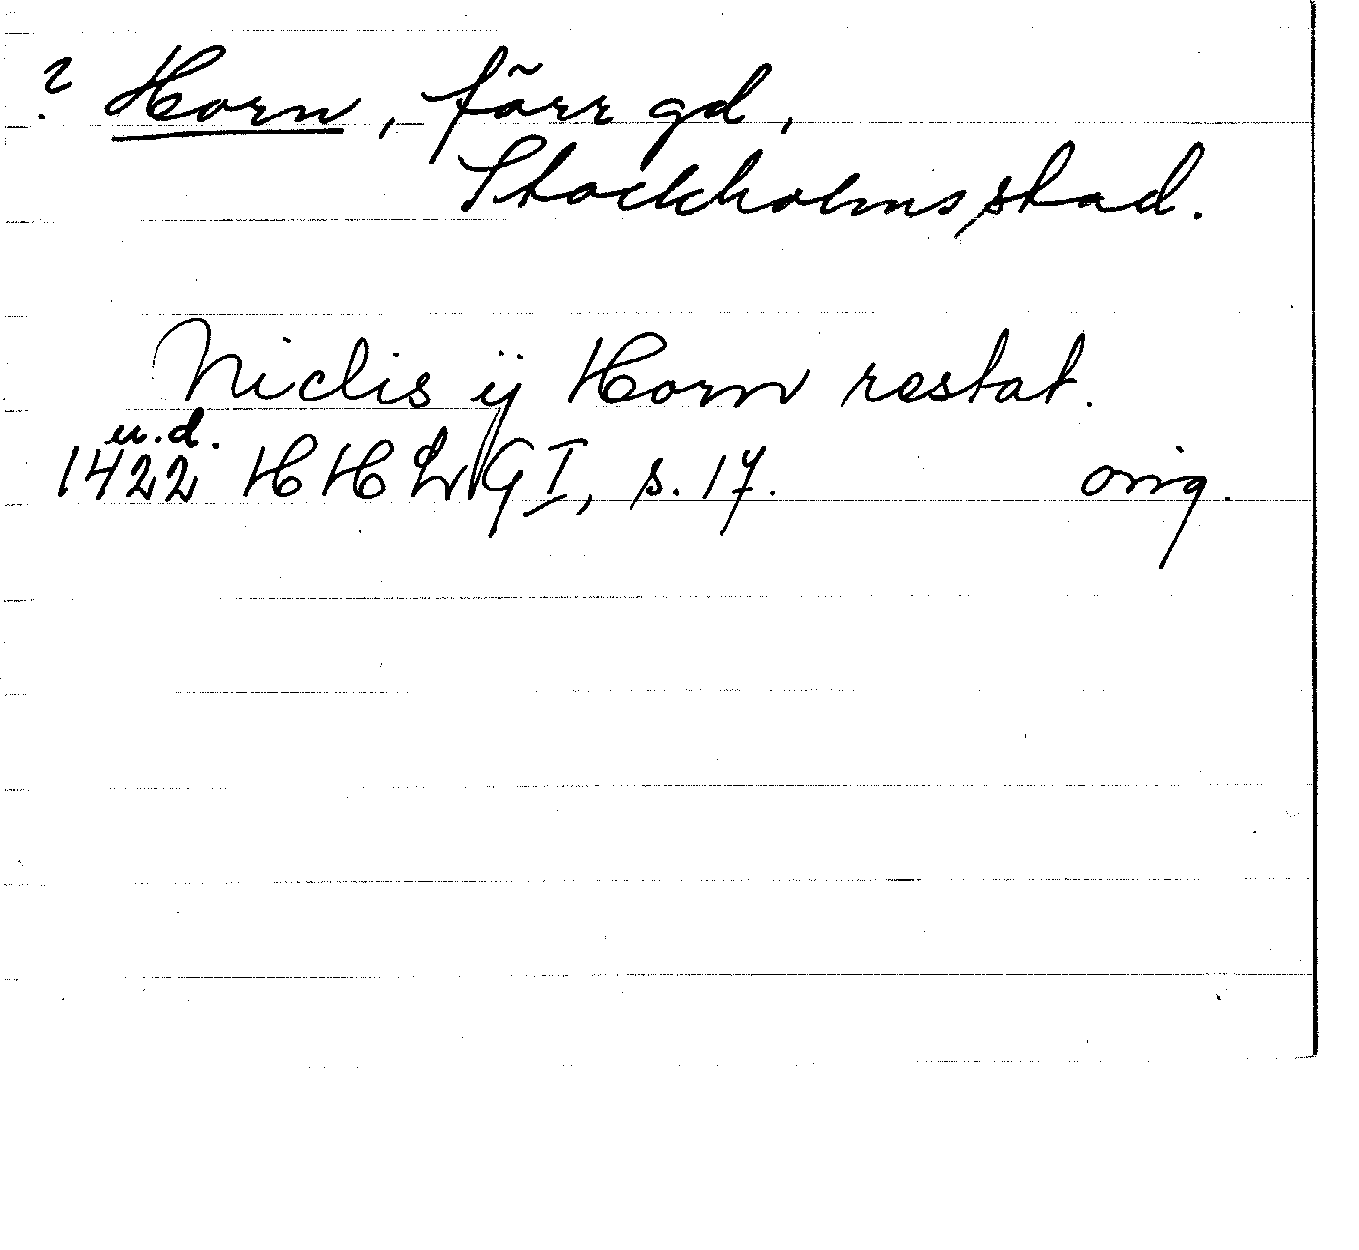 ? Horn, förr gd,
Stockholms stad.
Niclis ij Horn restat.
u.d.
1422 HH GI, s. 17. orig.